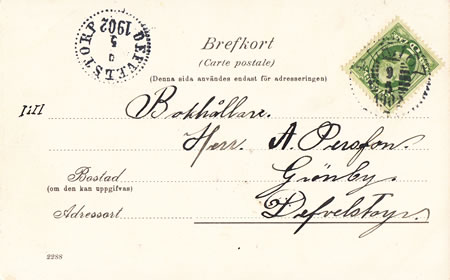 DEFVELSTORP
5
1902
Brefkort
(Carte postale)
(Denna sida användes endast för adresseringen)
Till
Bokhållare.
Herr. A. Persson.
Bostad
(om den kan uppgifvas)
Grönby.
Adressort
Defvelstorp.
2288